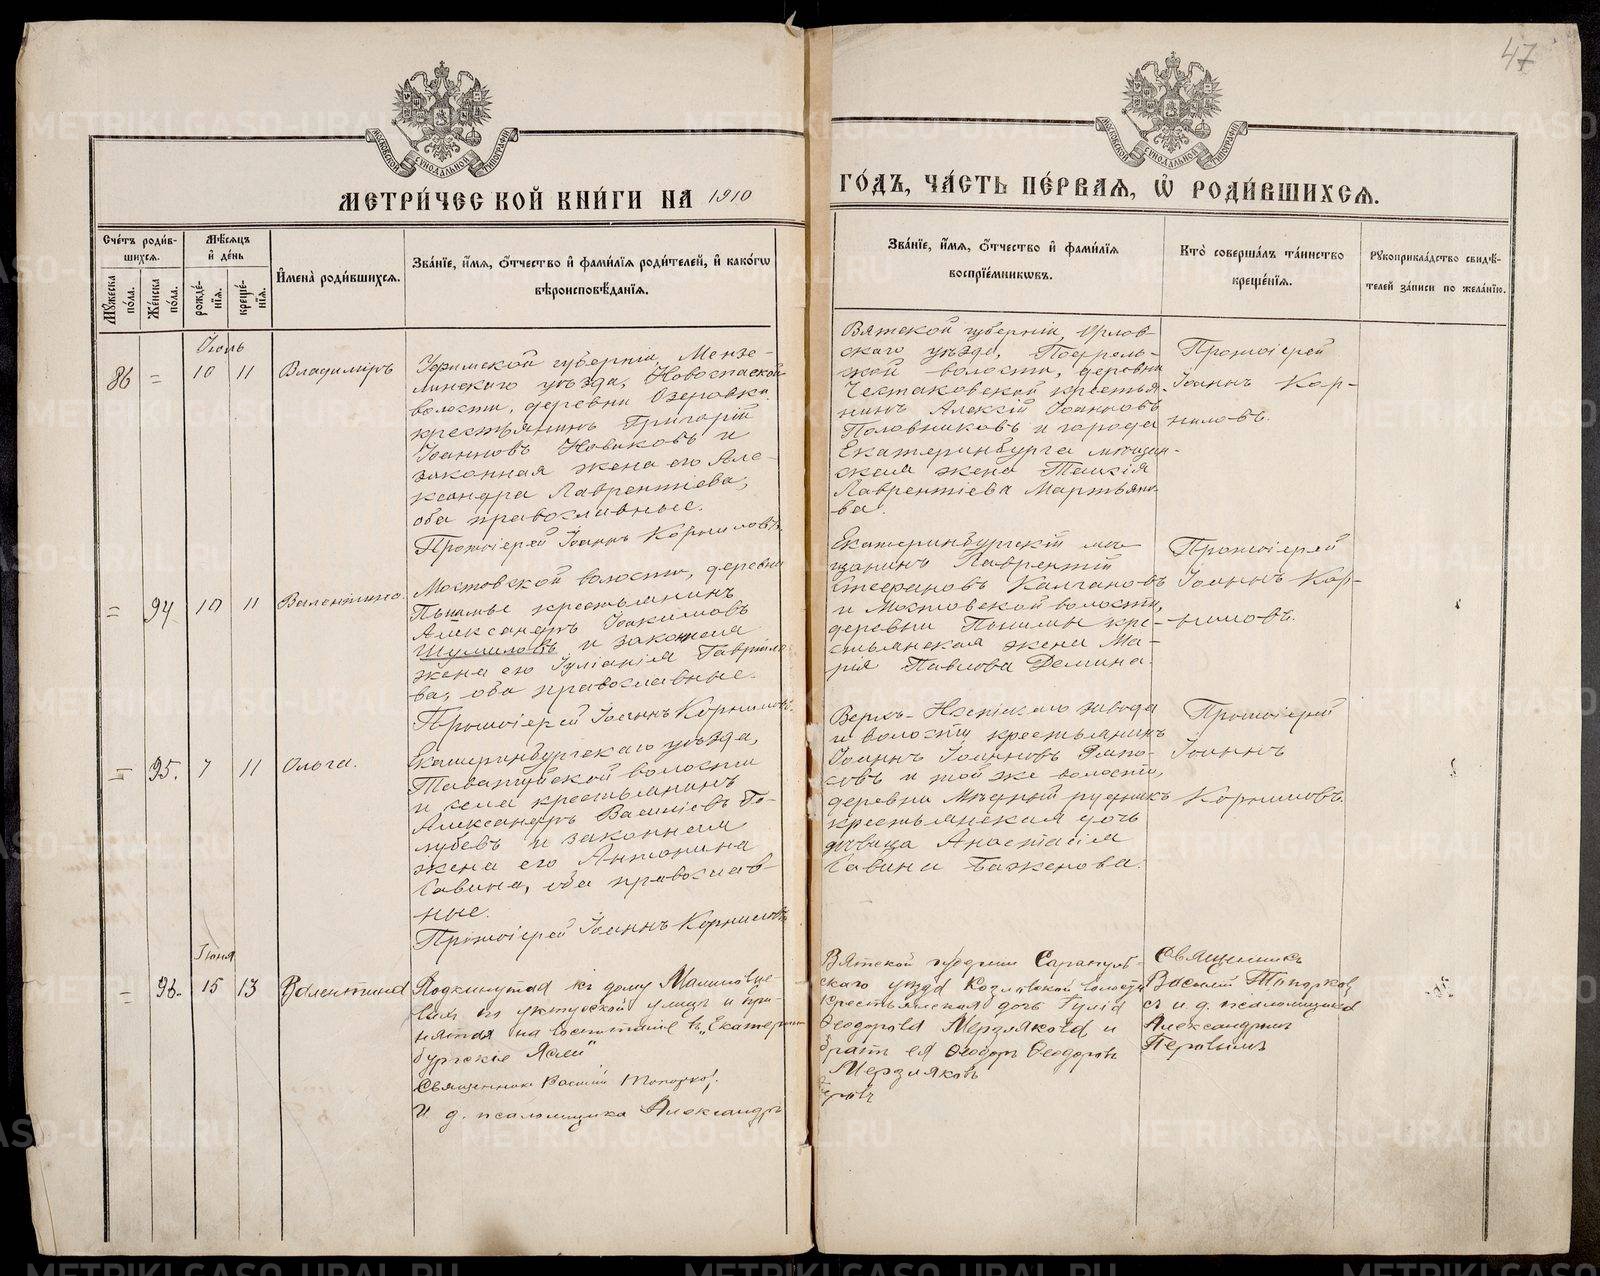 47
МОСКОВСКОЙ СѴНОДАЛЬНОЙ ТИПОГРАФІИ
МОСКОВСКОЙ СѴНОДАЛЬНОЙ ТИПОГРАФІИ
МЕТРИ́ЧЕСКОЙ КНИ́ГИ НА 1910
ГО́ДЪ, ЧА́СТЬ ПЕ́РВАѦ, Ѡ҆ РОДИ́ВШИХСѦ.
Сче́тъ роди́в-
шихсѧ.
Мꙋ́жеска по́ла.
Же́нска по́ла.
Мѣ́сѧцъ
и҆ де́нь
рожде́-
нїѧ.
креще́-
нїѧ.
И҆мена̀ роди́вшихсѧ.
Зва́нїе, и҆́мѧ, ѻ҆́тчество и҆ фами́лїѧ роди́телей, и҆ како́гѡ
вѣроисповѣ́данїѧ.
Зва́нїе, и҆́мѧ, ѻ҆́тчество и҆ фами́лїѧ
воспрїе́мникѡвъ.
Кто̀ соверша́лъ та́инство
креще́нїѧ.
Рꙋкоприкла́дство свидѣ́-
телей за́писи по жела́нїю.
86 = 10 11 Владиміръ
Уфимской губерніи, Мензе-
линскаго уѣзда, Новоспаской
волости, деревни Озеровки
крестьянинъ Григорій
Іоанновъ Новиковъ и
законная жена его Але-
ксандра Лаврентіева,
оба православные.
Протоіерей Іоаннъ Корниловъ.
Вятской губерніи, Орлов-
скаго уѣзда,
волости, деревни
крестья-
нинъ Алексій Іоанновъ
Половниковъ и города
Екатеринбурга мѣщан-
ская жена Таисія
Лаврентіева Мартьяно-
ва.
Протоіерей
Іоаннъ Кор-
ниловъ.
= 94 10 11 Валентина.
Мостовской волости, деревни
крестьянинъ
Александръ Іоакимовъ
Шумиловъ и законная
жена его Іуліанія Гаврило-
ва, оба православные.
Протоіерей Іоаннъ Корниловъ.
Екатеринбургскій мѣ-
щанинъ Лаврентій
Стефановъ Калгановъ
и Мостовской волости,
деревни кре-
стьянская жена Ма-
рія Павлова Демина.
Протоіерей
Іоаннъ Кор-
ниловъ.
= 95. 7 11 Ольга.
Екатеринбургскаго уѣзда,
Таватуйской волости
и села крестьянинъ
Александръ Василіевъ Го-
лубевъ и законная
жена его Антонина
Савина, оба православ-
ные.
Протоіерей Іоаннъ Корниловъ
Верхъ-Нейвинскаго завода
и волости крестьянинъ
Іоаннъ Іоанновъ
и той же волости,
деревни Мѣдный рудникъ
крестьянская дочь
дѣвица Анастасія
Савина Баженова.
Протоіерей
Іоаннъ
Корниловъ.
Іюня
= 96. 15 13 Валентина
Подкинутая къ дому
по уктусской улицѣ и при-
нятая на воспитаніе въ „Екатерин-
бургскіе Ясли“
Священникъ Василій Топорковъ.
И. д. псаломщика Александръ
Вятской губерніи Сарапуль-
скаго уѣзда Козловской волости
Крестьянская дочь Юлія
Ѳеодорова Мерзлякова и
братъ ея Ѳеодоръ Ѳеодоровъ
Мерзляковъ
Священникъ
Василій Топорковъ
съ и. д. псаломщика
Александромъ
Перовымъ